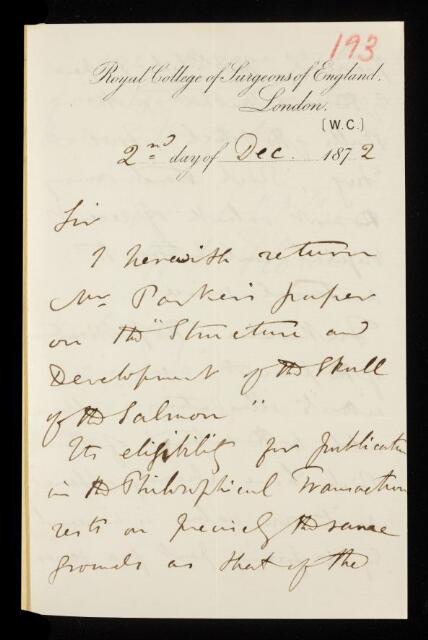 193
Royal College of Surgeons of England.
London.
(W.C.)
2nd day of Dec. 1872
Sir
I herewith return
Mr Parker's paper
on the "Structure and
Development of the Skull
of the Salmon"
Its eligibility for publication
in the Philosophical Transactions
rests on precisely the same
grounds as that of the